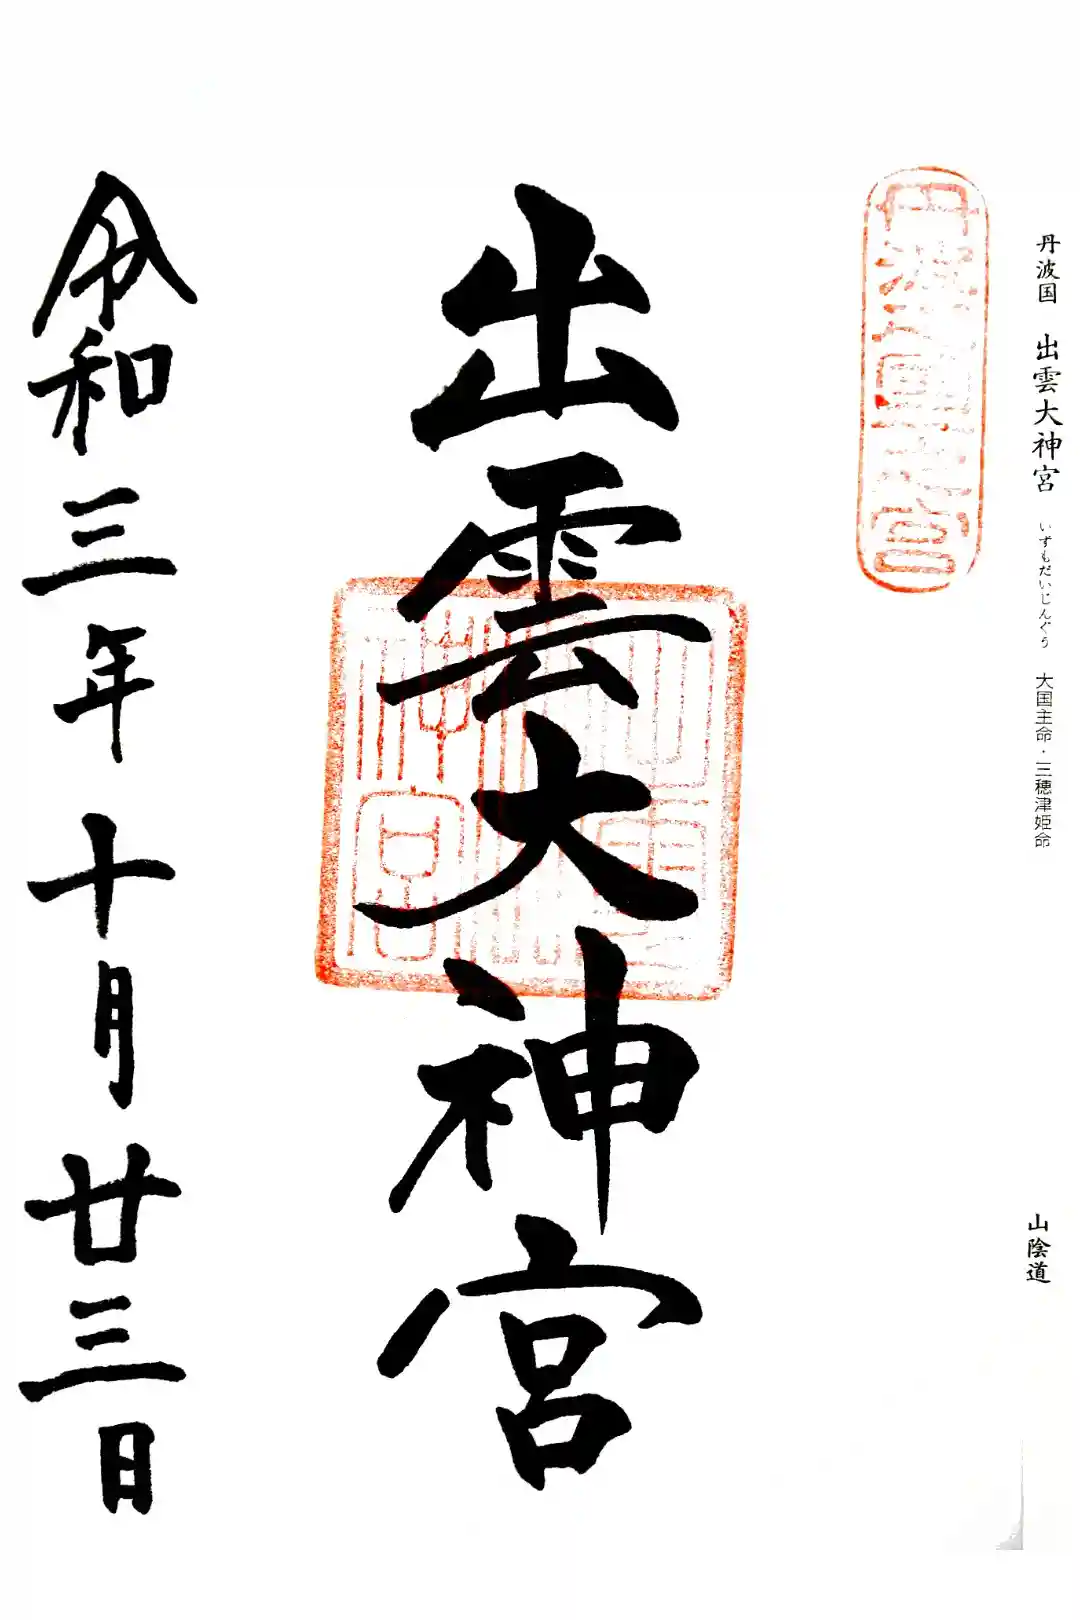 丹波国 出雲大神宮 いずもだいじんぐう 大国主命・三穂津姫命
山陰道
丹波一之宮
出雲大神宮
令和三年十月廿三日